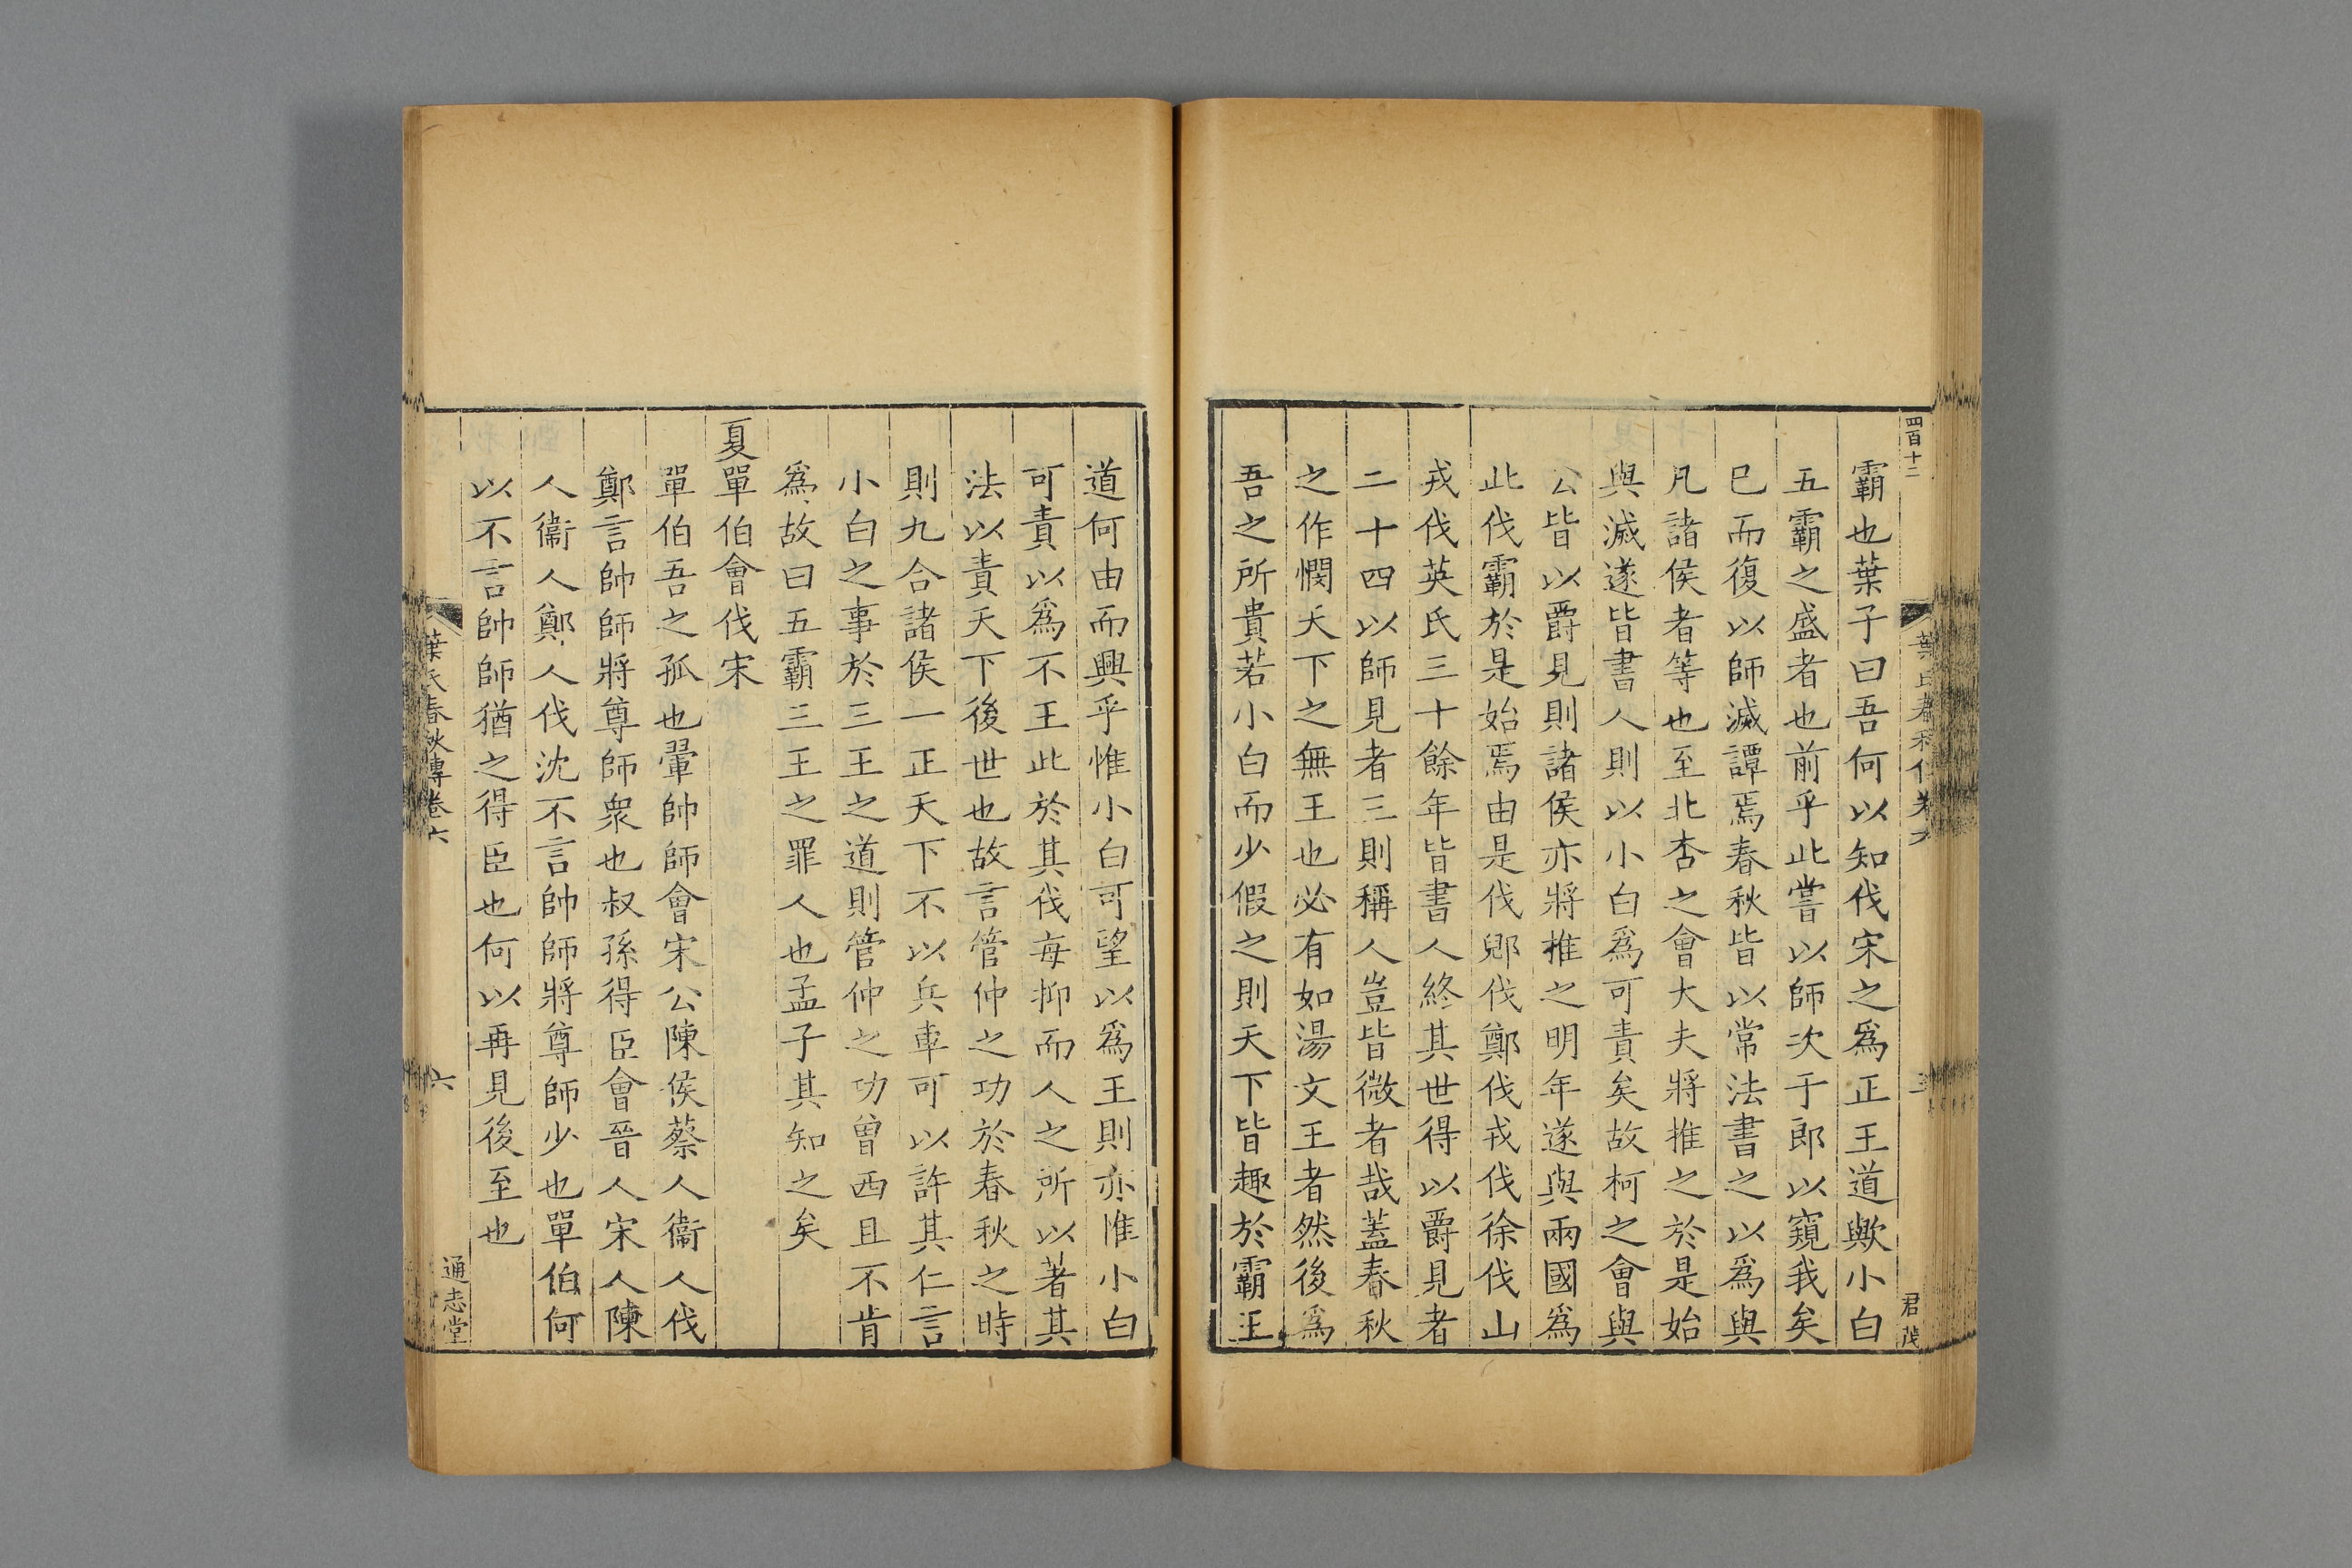 四百十二
君茂
霸也葉子曰吾何以知伐宋之爲正王道歟小白
五霸之盛者也前乎此嘗以師次于郎以窺我矣
巳而復以師滅譚焉春秋皆以常法書之以爲與
凡諸侯者等也至北杏之會大夫將推之於是始
與滅遂皆書人則以小白爲可責矣故柯之會與
公皆以爵見則諸侯亦將推之明年遂與兩國爲
此伐霸於是始焉由是伐郳伐鄭伐戎伐徐伐山
戎伐英氏三十餘年皆書人終其世得以爵見者
二十四以師見者三則稱人豈皆微者哉蓋春秋
之作憫天下之無王也必有如湯文王者然後爲
吾之所貴若小白而少假之則天下皆趣於霸王
道何由而興乎惟小白可望以爲王則亦惟小白
可責以爲不王此於其伐每抑而人之所以著其
法以責天下後世也故言管仲之功於春秋之時
則九合諸侯一正天下不以兵車可以許其仁言
小白之事於三王之道則管仲之功曾西且不肯
爲故曰五霸三王之罪人也孟子其知之矣
夏單伯會伐宋
單伯吾之孤也翬帥師會宋公陳侯蔡人衞人伐
鄭言帥師將尊師衆也叔孫得臣會晉人宋人陳
人衞人鄭人伐沈不言帥師將尊師少也單伯何
以不言帥師猶之得臣也何以再見後至也
葉氏春秋傳卷六
六
通志堂